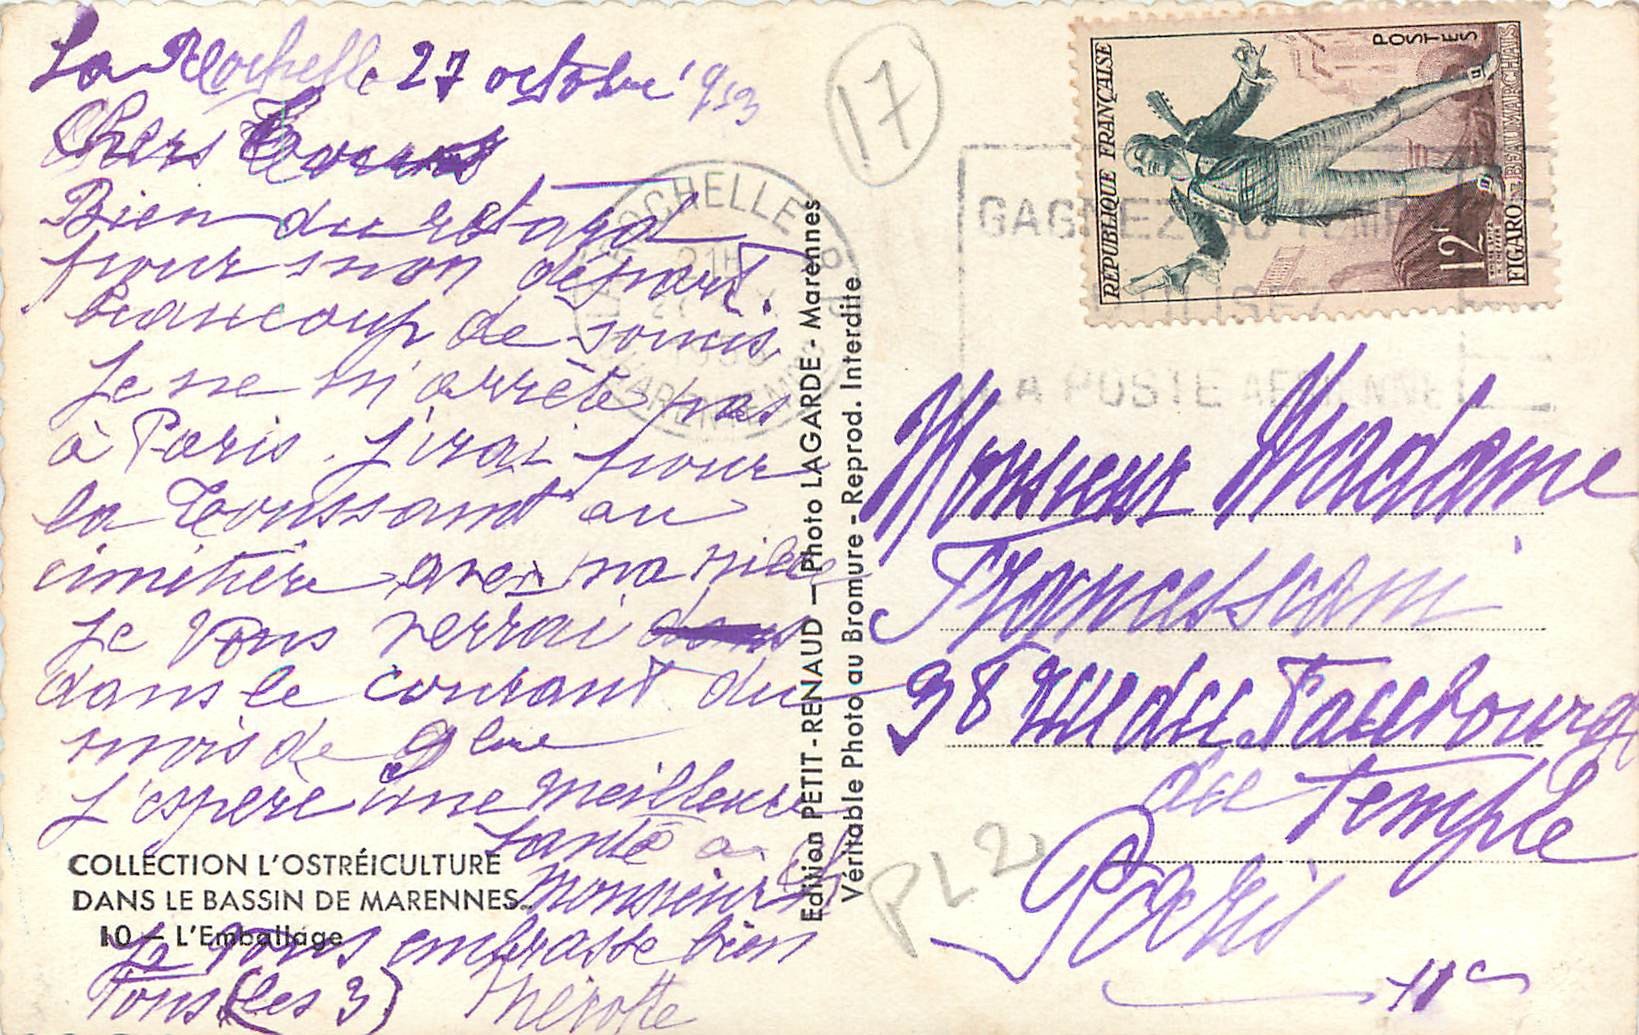 La Rochelle 27 octobre 1953
Chers Tous
Bien du retard
pour mon départ.
beaucoup de soucis
Je ne m'arrête pas
à Paris. J'irai pour
la Toussaint au
cimetière avec ma nièce
Je vous verrai dans
dans le courant du
mois de 9bre
J'espere une meilleure
santé a
Monsieur
Je vous embrasse bien
Tous (les 3)
COLLECTION L'OSTRÉICULTURE
DANS LE BASSIN DE MARENNES
10 — L'Emballage
Edition PETIT-RENAUD — Photo LAGARDE - Marennes
Véritable Photo au Bromure - Reprod. Interdite
17
LA ROCHELLE
21H
GAGNEZ DU TEMPS
UTILISEZ
LA POSTE AERIENNE
RÉPUBLIQUE FRANÇAISE
POSTES
12F
FIGARO - BEAUMARCHAIS
Monsieur Madame
38 rue du Faubourg
du Temple
Paris
11e
PL2